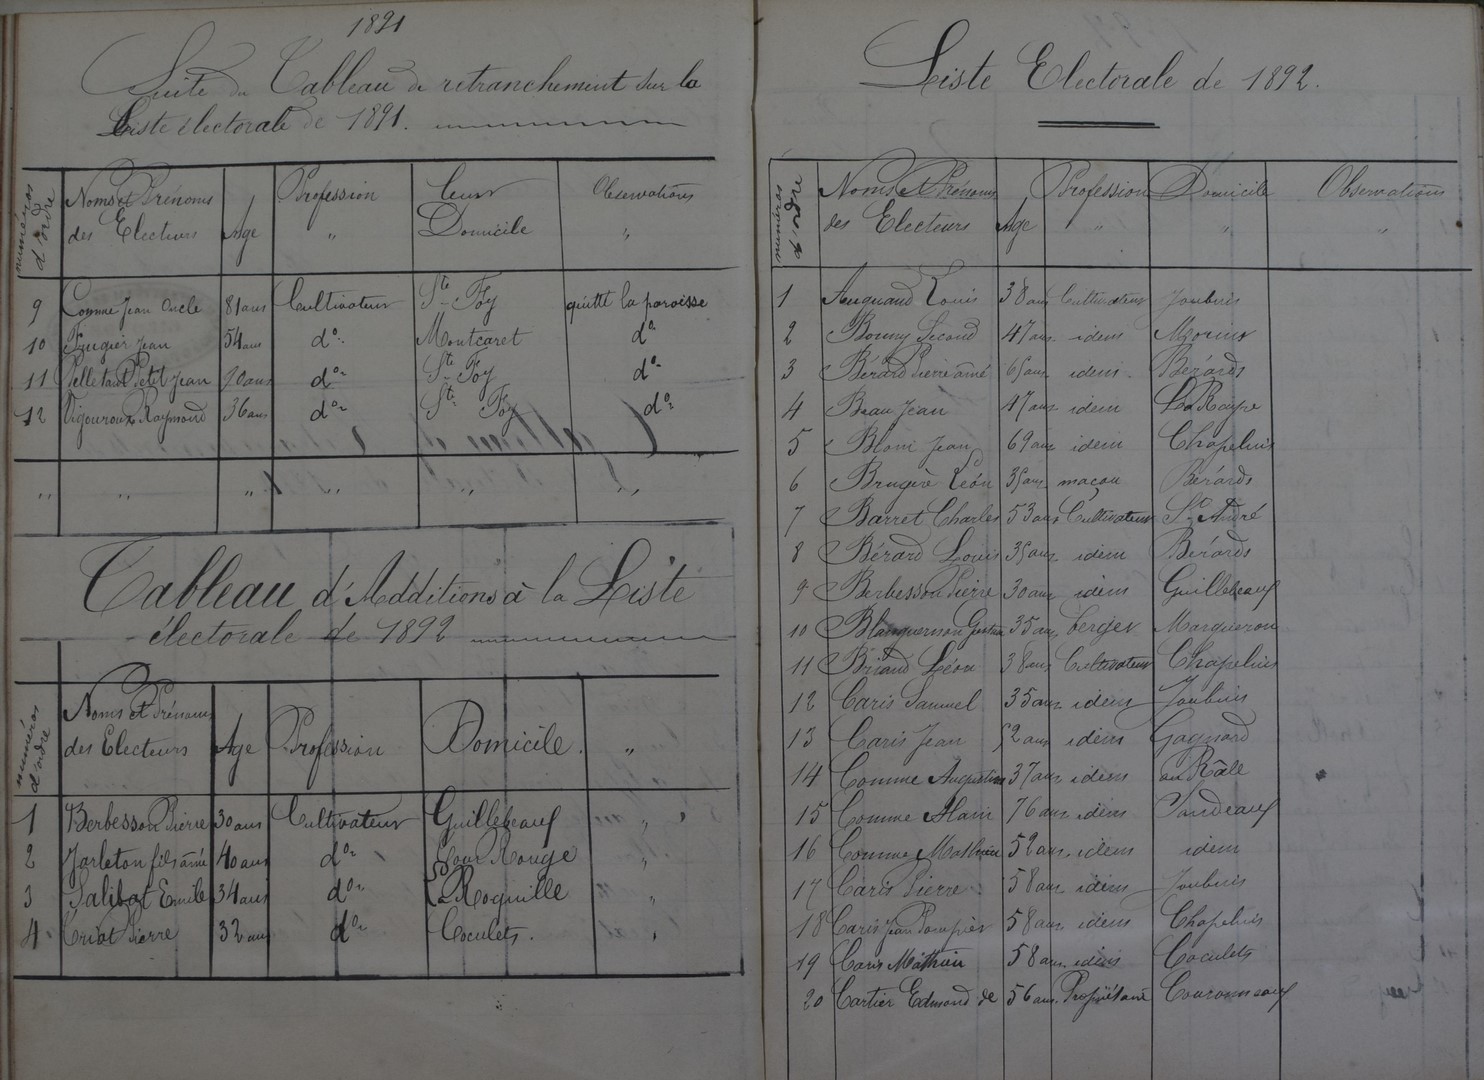 1891
Suite du Tableau de retranchement sur la
Liste électorale de 1891.
numéros d'ordre
Noms et Prénoms des Electeurs
Age
Profession "
Leur Domicile
Observations "
9 Comme Jean Oncle 81 ans Cultivateur Ste Foy quitté la paroisse
10 Fougier Jean 54 ans do Montcaret do
11 Pelletant Petit Jean 90 ans do Ste Foy do
12 Vigouroux Raymond 36 ans do Ste Foy do
" " " " " "
Tableau d'Additions à la Liste
électorale de 1892
numéros d'ordre
Noms et Prénoms des Electeurs
Age
Profession
Domicile.
"
1 Berbesson Pierre 30 ans Cultivateur Guillebeauf "
2 Jarleton fils aîné 40 ans do Rouge "
3 Salibat Emile 34 ans do Roquille "
4 Criat Pierre 32 ans do Coculets. "
Liste Electorale de 1892.
numéros d'ordre
Noms et Prénoms des Electeurs
Age
Profession "
Domicile "
Observations "
1 Louis 38 ans Cultivateur Joubuis
2 Bonny Second 47 ans idem Morins
3 Bérard Pierre aîné 65 ans idem Bérards
4 Beau Jean 47 ans idem La Raype
5 Jean 69 ans idem Chapeluis
6 Brugère Léon 35 ans maçon Bérards
7 Barret Charles 53 ans Cultivateur St André
8 Bérard Louis 35 ans idem Bérards
9 Berbesson Pierre 30 ans idem Guillebeauf
10 35 ans berger Margueron
11 Briaud Léon 38 ans Cultivateur Chapeluis
12 Caris Samuel 35 ans idem Joubuis
13 Caris Jean 52 ans idem Gagnard
14 Comme Augustin 37 ans idem au Râle
15 Comme Alain 76 ans idem
16 Comme Mathieu 52 ans idem idem
17 Caris Pierre 58 ans idem Joubuis
18 Caris Jean 58 ans idem Chapeluis
19 Caris Mathieu 58 ans idem Coculets
20 Cartier Edmond de 56 ans Propriétaire Couronneauf